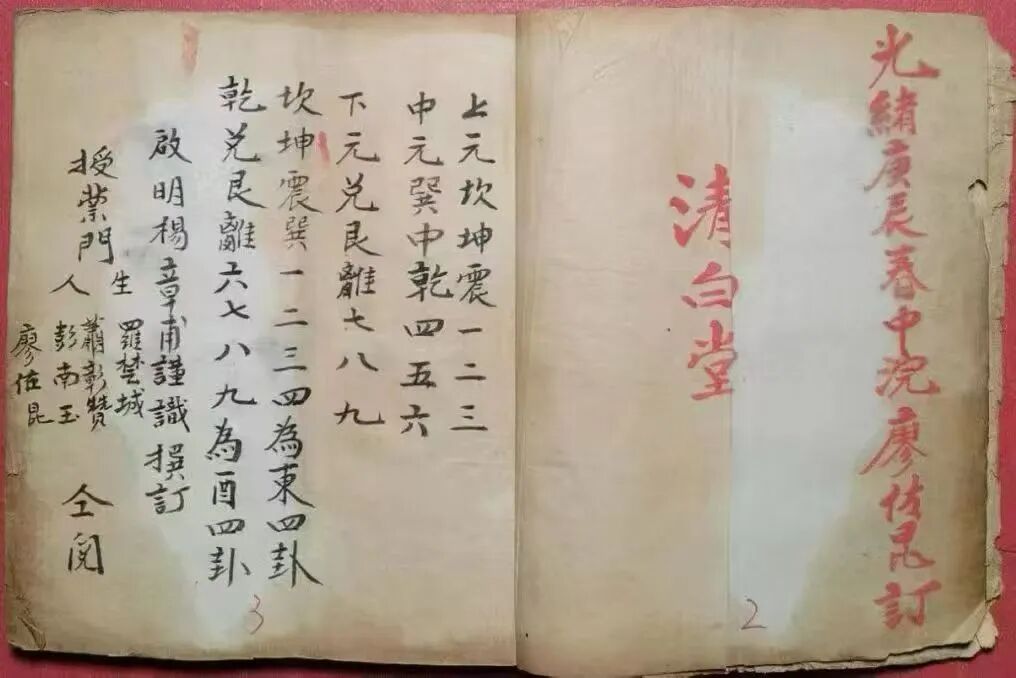 光緒庚辰春中浣廖佐昆訂
清白堂
2
上元坎坤震一二三
中元巽中乾四五六
下元兌艮離七八九
坎坤震巽一二三四為東四卦
乾兌艮離六七八九為酉四卦
啟明楊章甫謹識撰訂
授業門人生
羅埜城
蕭彰贊
彭南玉
廖佐昆
仝閱
3